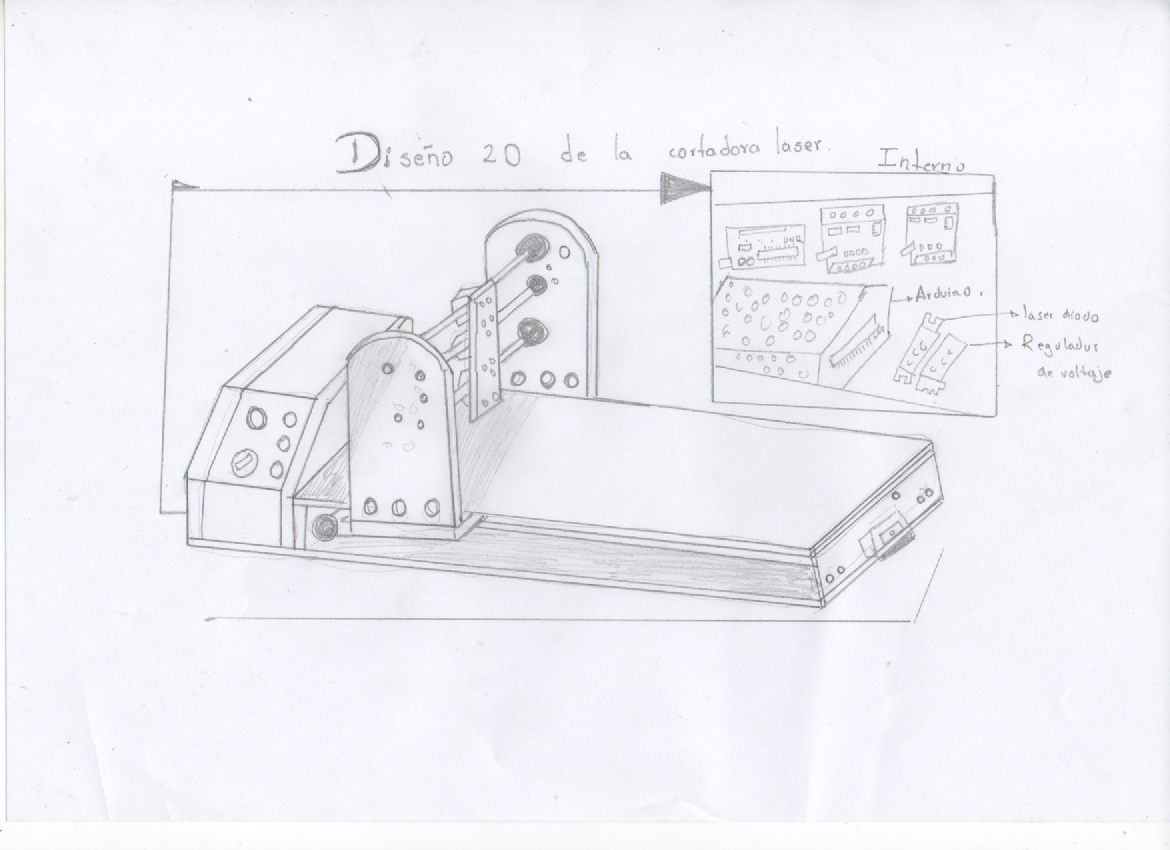 Diseño 2D de la cortadora laser.
Interno
Arduino.
laser diodo
Regulador
de voltaje